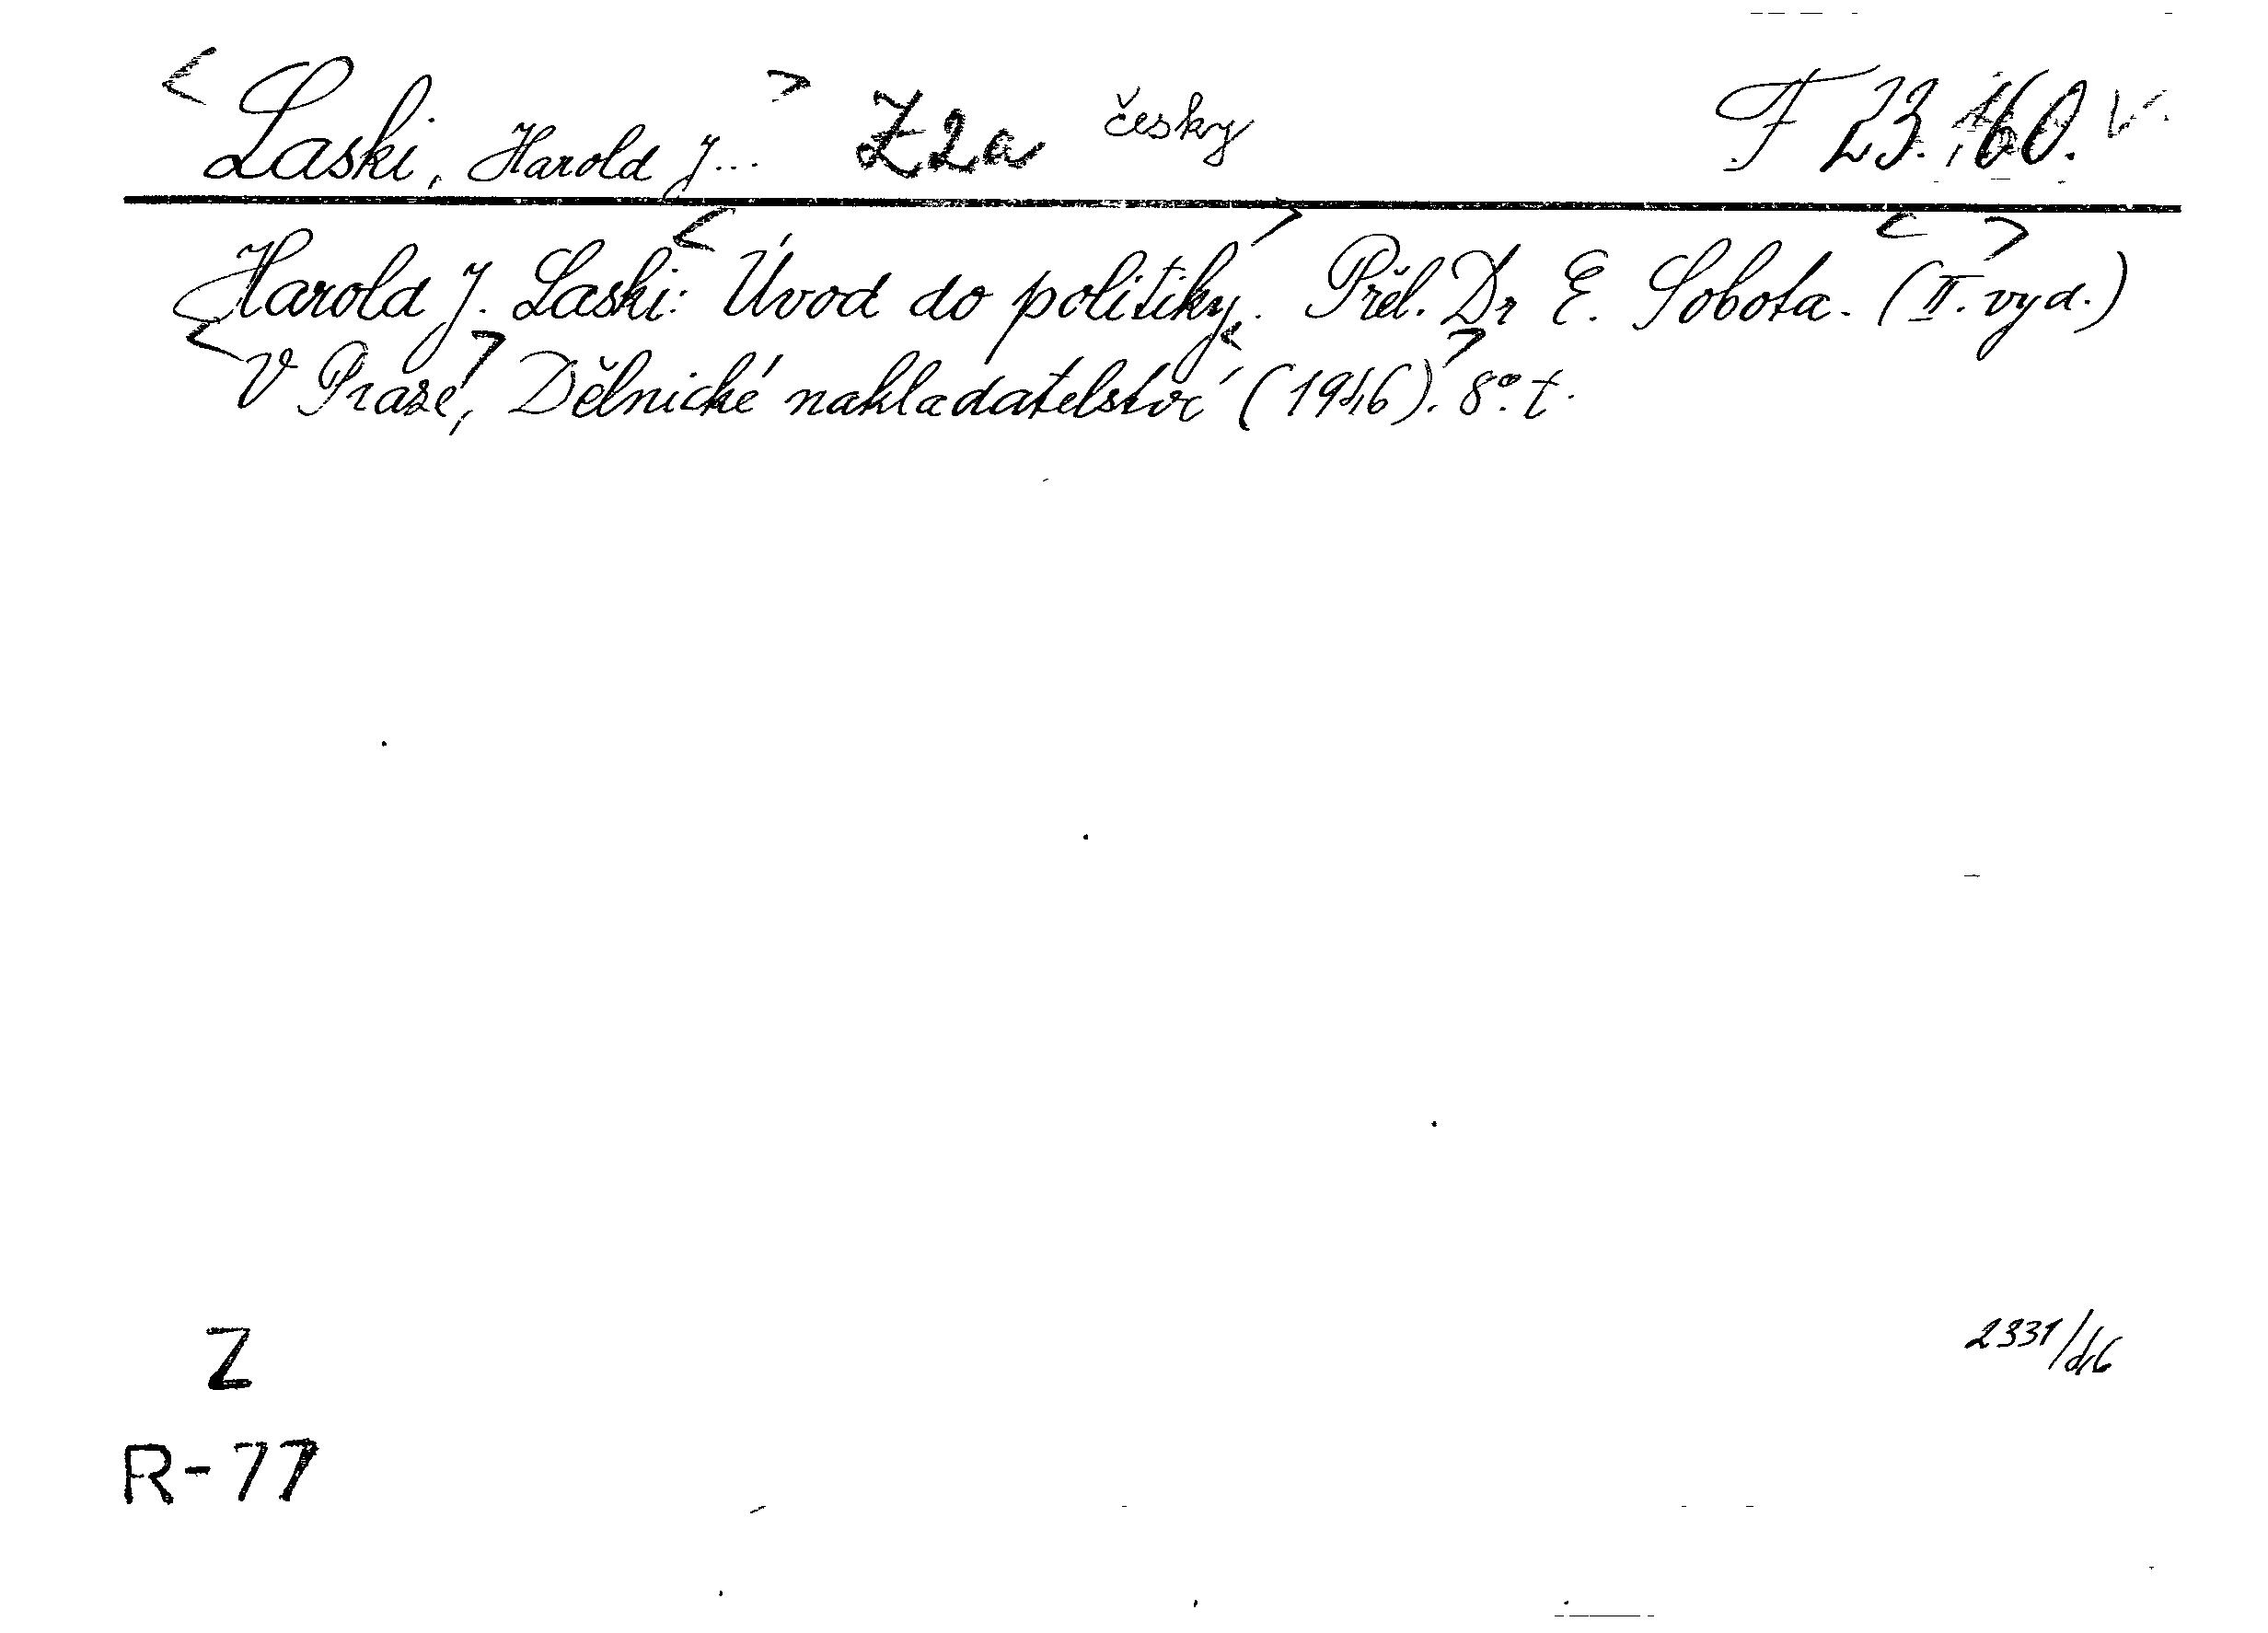 <Laski, Harold J...> Z2a česky F 23.160. V.
Harold J. Laski: <Úvod do politiky>. Přel. Dr E. Sobota. (<II.> vyd.)
<V Praze>, Dělnické nakladatelství <(1946)>. 8°. t.
Z
2331/46
R-77